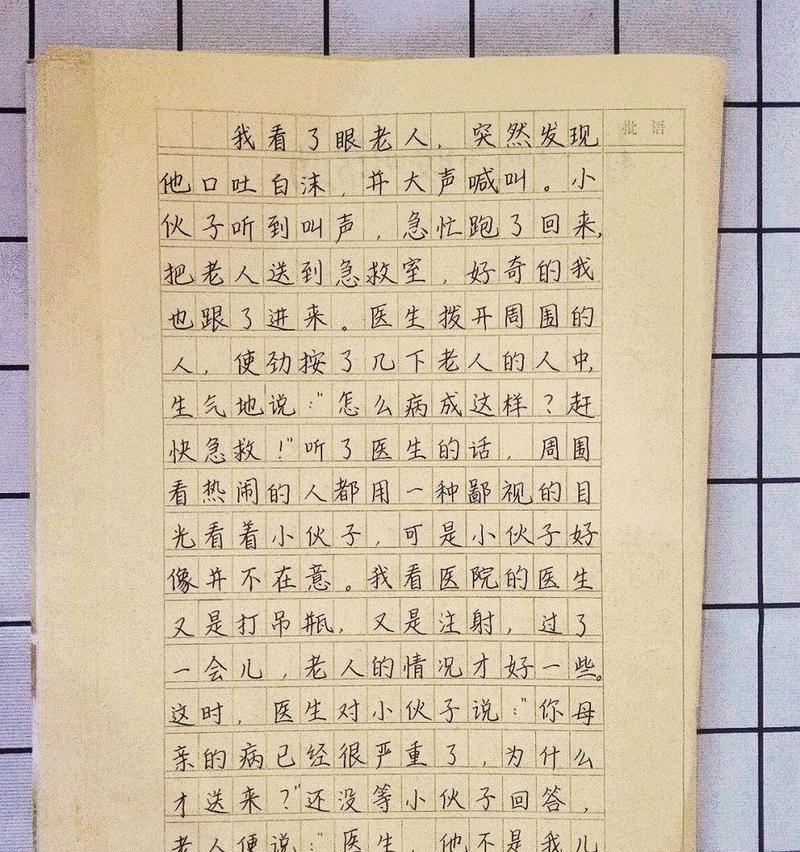 批语
我看了眼老人，突然发现
他口吐白沫，并大声喊叫。小
伙子听到叫声，急忙跑了回来，
把老人送到急救室，好奇的我
也跟了进来。医生拨开周围的
人，使劲按了几下老人的人中，
生气地说："怎么病成这样？赶
快急救！"听了医生的话，周围
看热闹的人都用一种鄙视的目
光看着小伙子，可是小伙子好
像并不在意。我看医院的医生
又是打吊瓶，又是注射，过了
一会儿，老人的情况才好一些。
这时，医生对小伙子说："你母
亲的病已经很严重了，为什么
才送来？"还没等小伙子回答，
老人便说："医生，他不是我儿